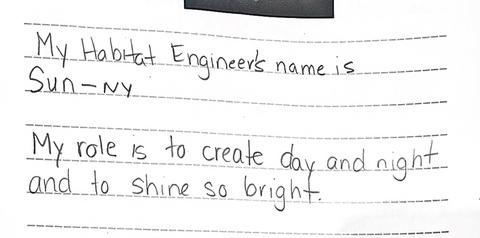 My Habitat Engineer's name is
Sun-NY
My role is to create day and night
and to shine so bright.